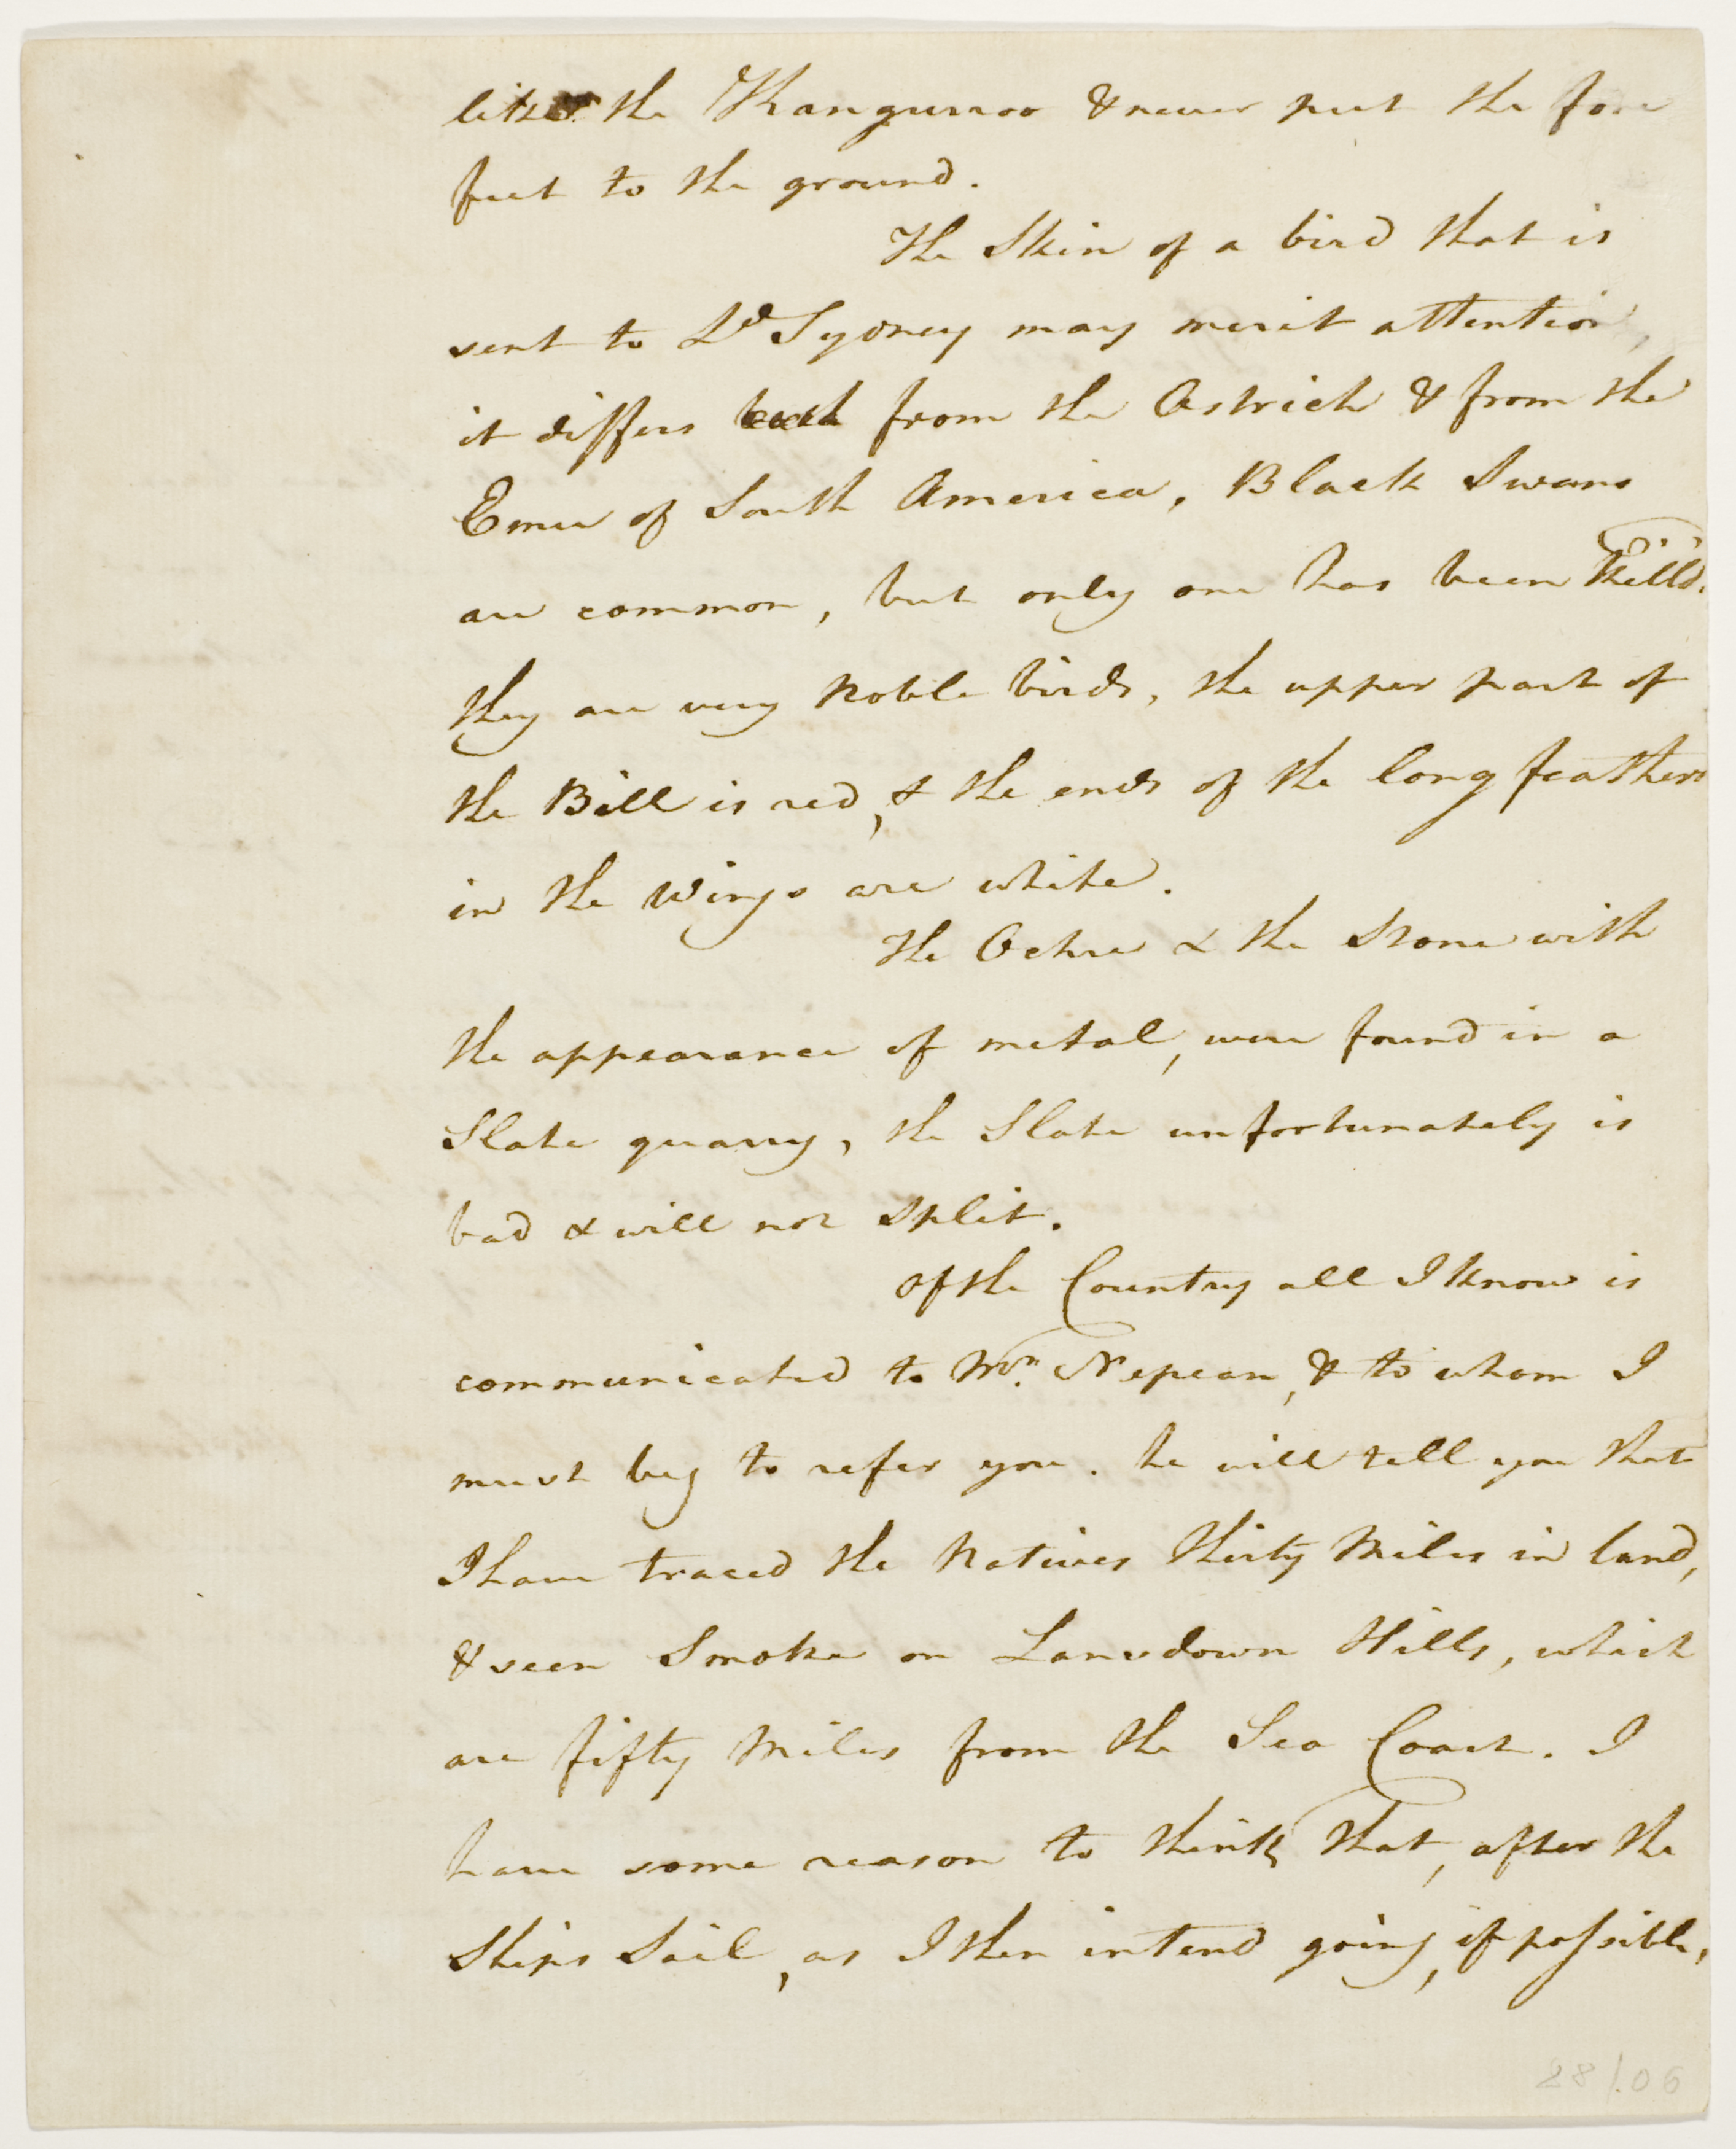 like the Kanguroo & never put the fore
feet to the ground.
The Skin of a bird that is
sent to Ld Sydney may merit attention,
it differs both from the Ostrich & from the
Emu of South America, Black Swans
are common, but only one has been Kill'd.
they are very Noble birds, the upper part of
the Bill is red, & the ends of the long feathers
in the Wings are white.
The Ochre & the Stone with
the appearance of metal, were found in a
Slate quarry, the Slate unfortunately is
bad & will not Split.
Of the Country all I know is
communicated to Mr. Nepean, & to whom I
must beg to refer you. he will tell you that
I have traced the Natives thirty Miles in land,
& seen Smoke on Lansdown Hills, which
are fifty Miles from the Sea Coast. I
have some reason to think that, after the
Ships Sail, as I then intend going, if possible,
28/.06